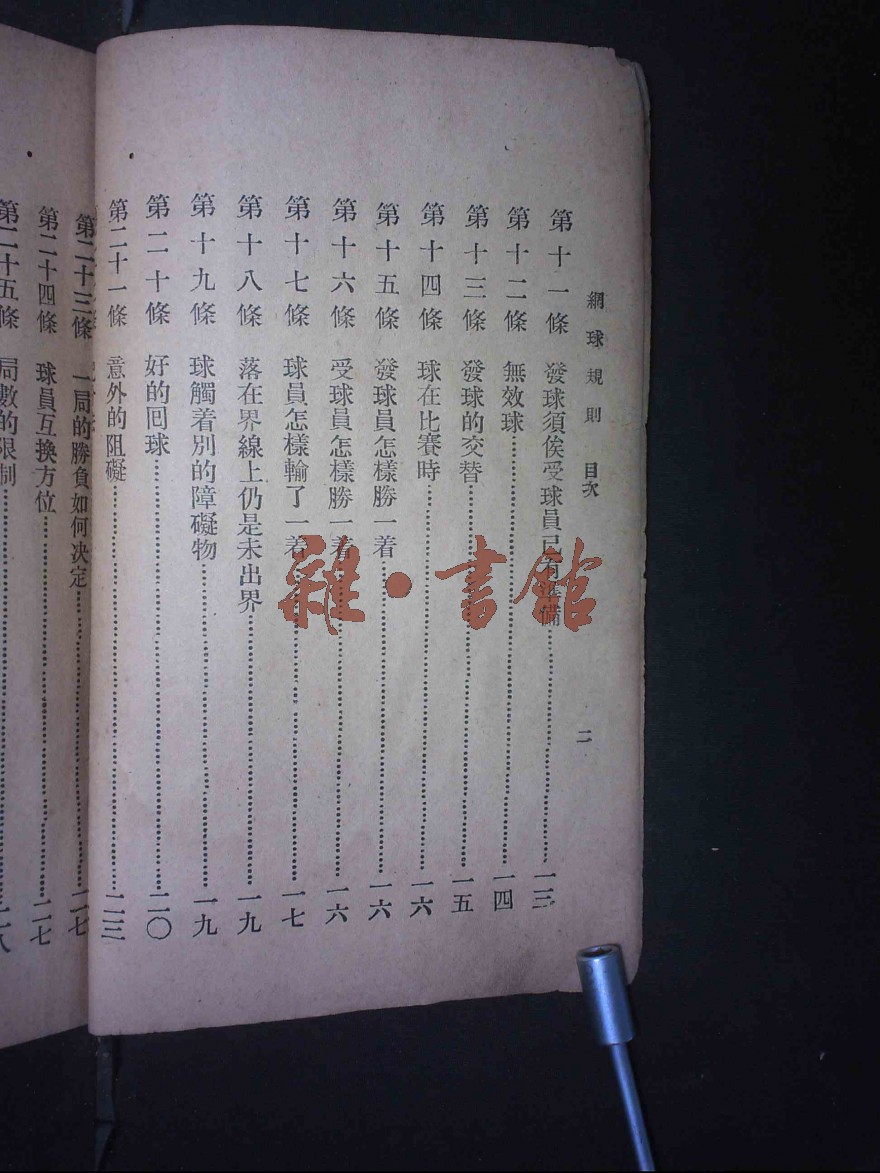 網球規則 目次 二
第十一條 發球須俟受球員已有準備……一三
第十二條 無效球……一四
第十三條 發球的交替……一五
第十四條 球在比賽時……一六
第十五條 發球員怎樣勝一着……一六
第十六條 受球員怎樣勝一着……一六
第十七條 球員怎樣輸了一着……一七
第十八條 落在界線上仍是未出界……一九
第十九條 球觸着別的障礙物……一九
第二十條 好的囘球……二〇
第二十一條 意外的阻礙……二三
第二十三條 一局的勝負如何決定……二七
第二十四條 球員互換方位……二七
第二十五條 局數的限制……二八
雜·書館